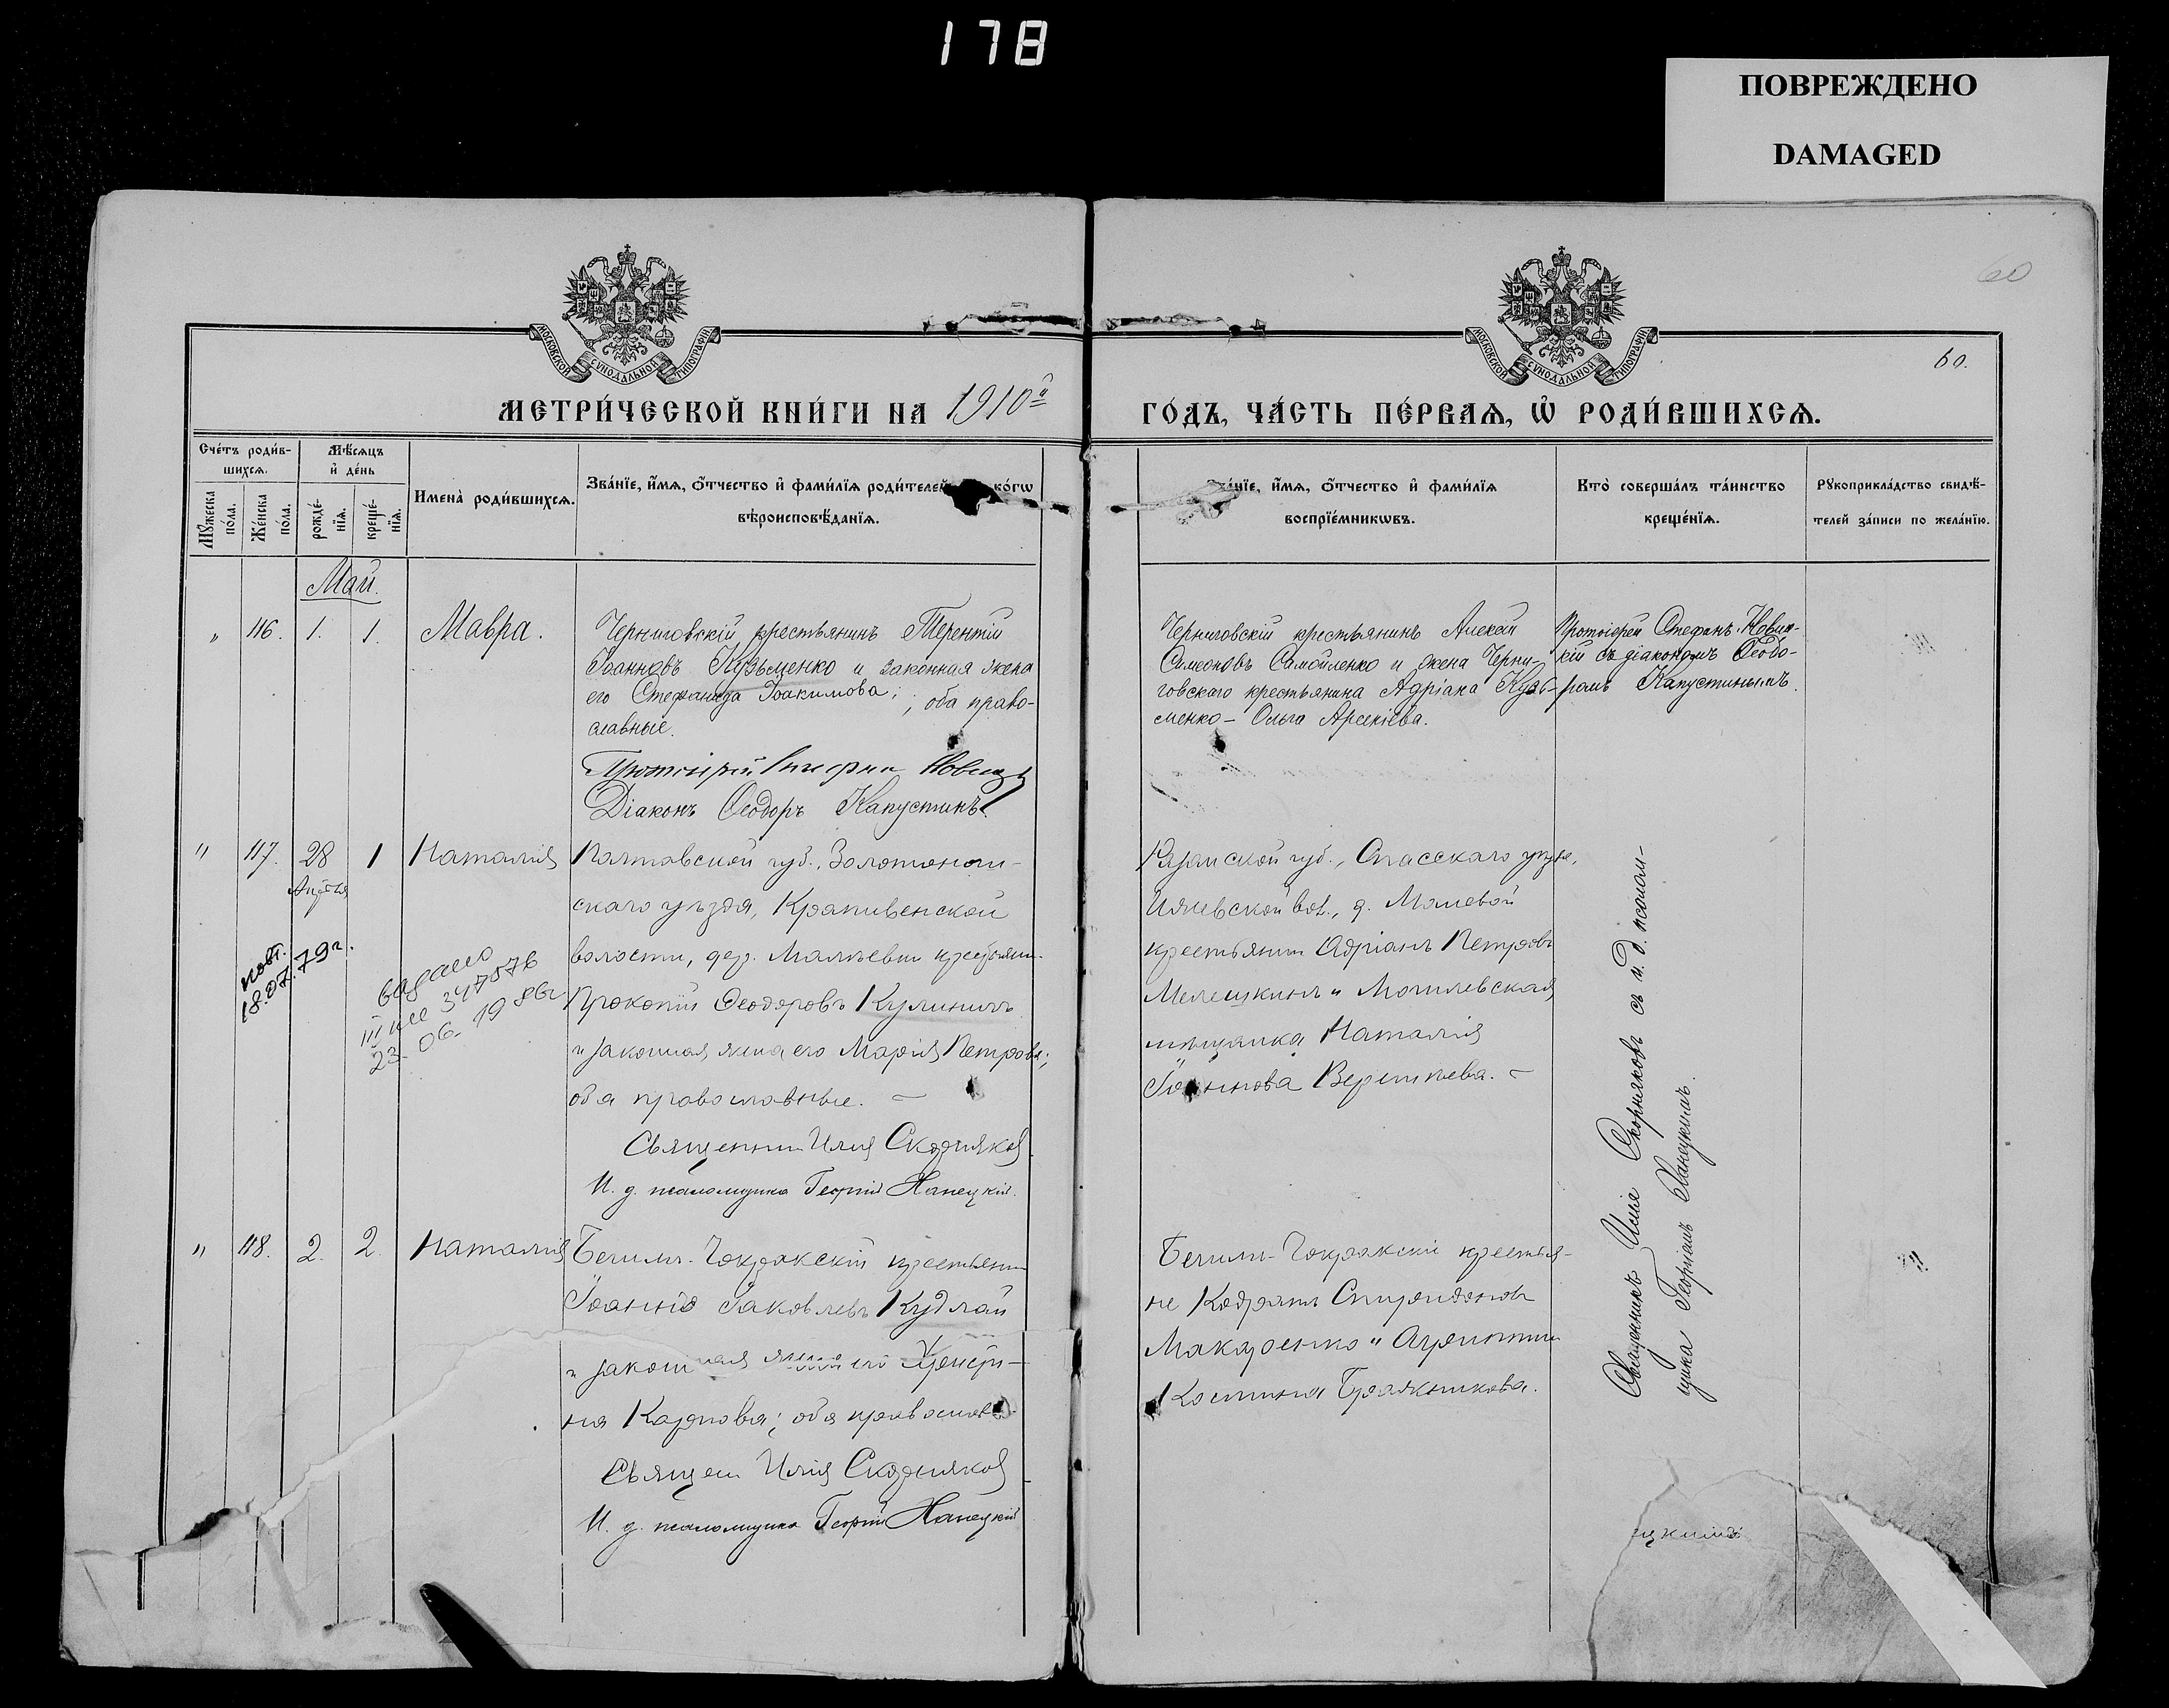 178
ПОВРЕЖДЕНО
DAMAGED
60
60.
МОСКОВСКОЙ СѴНОДАЛЬНОЙ ТИПОГРАФІИ
МОСКОВСКОЙ СѴНОДАЛЬНОЙ ТИПОГРАФІИ
МЕТРИ́ЧЕСКОЙ КНИ́ГИ НА 1910й
ГО́ДЪ, ЧА́СТЬ ПЕ́РВАѦ, Ѽ РОДИ́ВШИХСѦ.
Сче́тъ роди́в-
шихсѧ.
Мѣ́сѧцъ
и҆ де́нь
Мꙋ́жеска
по́ла.
Же́нска
по́ла.
рожде́-
нїѧ.
креще́-
нїѧ.
Имена̀ роди́вшихсѧ.
Зва́нїе, и҆́мѧ, ѻ҆́тчество и҆ фами́лїѧ роди́телей ко́гѡ
вѣроисповѣ́данїѧ.
Зва́нїе, и҆́мѧ, ѻ҆́тчество и҆ фами́лїѧ
воспрїе́мникѡвъ.
Кто̀ соверша́лъ та́инство
креще́нїѧ.
Рꙋкоприкла́дство свидѣ́-
телей за́писи по жела́нїю.
Май.
„ 116. 1. 1. Мавра.
Черниговскій крестьянинъ Терентій
Іоанновъ Кузьменко и законная жена
его Стефанида Іоакимова; оба право-
славные.
Протоіерей Стефанъ Новицк
Діаконъ Ѳеодоръ Капустинъ
Черниговскій крестьянинъ Алексій
Симеоновъ Самойленко и жена Черни-
говскаго крестьянина Адріана Кузь-
менко - Ольга Арсеніева.
Протоіерей Стефанъ Новиц-
кій съ діакономъ Ѳеодо-
ромъ Капустинымъ.
„ 117. 28 1 Наталія
Апрѣля
Полтавской губ., Золотонош-
скаго уѣзда, Крапивенской
волости, дер. Мальевки крестьянин
Прокопій Ѳеодоровъ Кулиничъ
и законная жена его Марія Петрова;
оба православные. -
Священник Илія Скорняков
И. д. псаломщика Георгій Ханецкій.
повт.
18.07.79г.
выдано
III
347576
23-06-1986г
Рязанской губ., Спасскаго уѣзда,
Ижевской вол., д. Мамевой
крестьянин Адріанъ Петровъ
Мелешкинъ и Могилевская
мѣщанка Наталія
Іоаннова Верещаева. -
Священникъ Илія Скорняковъ съ и. д. псалом-
щика Георгіемъ Ханецкимъ.
„ 118. 2. 2. Наталія
Бешпл-Чокракскій крестьянин
Іоаннъ Іаковлевъ Кудлай
и законная жена его Христи-
на Карпова; оба православ.
Священ Илія Скорняков
И. д. псаломщика Георгій Ханецкій
крестья-
не Кодратъ Спиридонов
Макаренко и Агрипина
Костина Бражникова.
ицкимъ